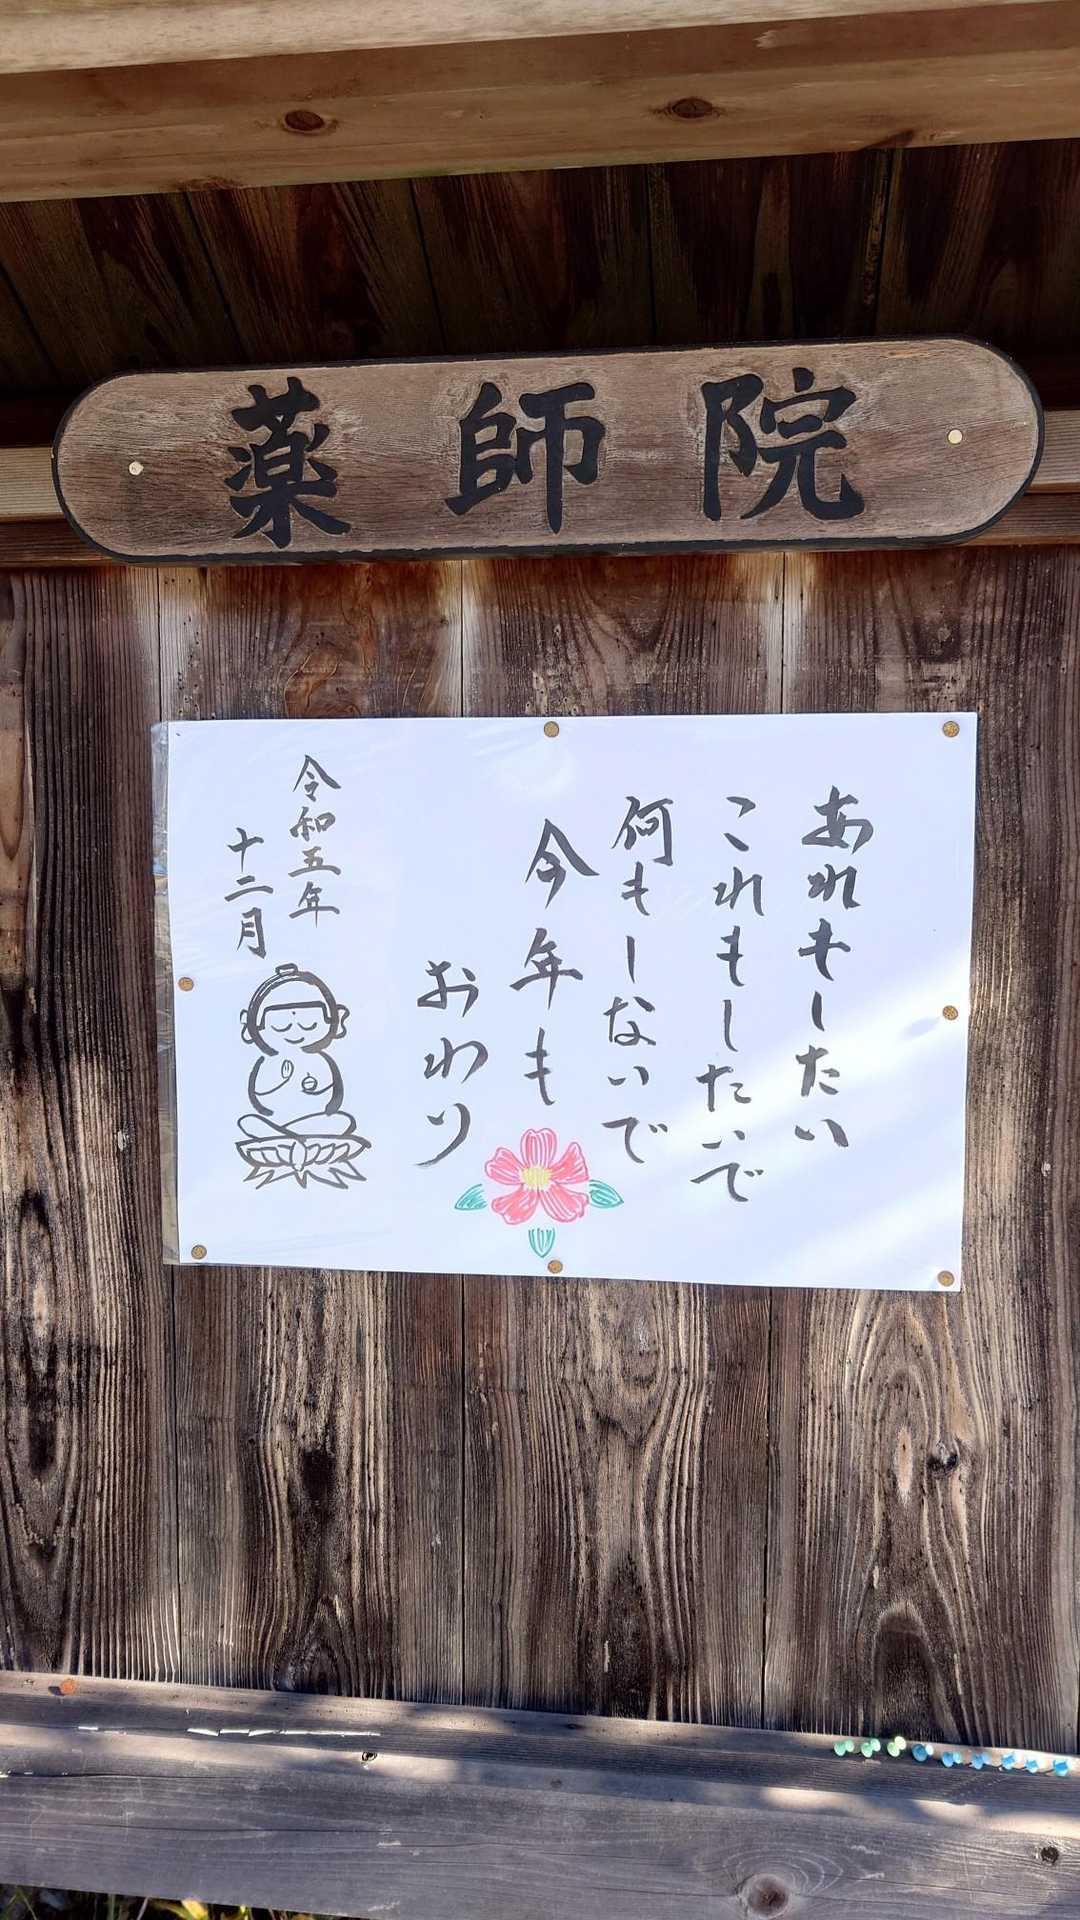 薬師院
あれもしたい
これもしたいで
何もしないで
今年も
おわり
令和五年
十二月